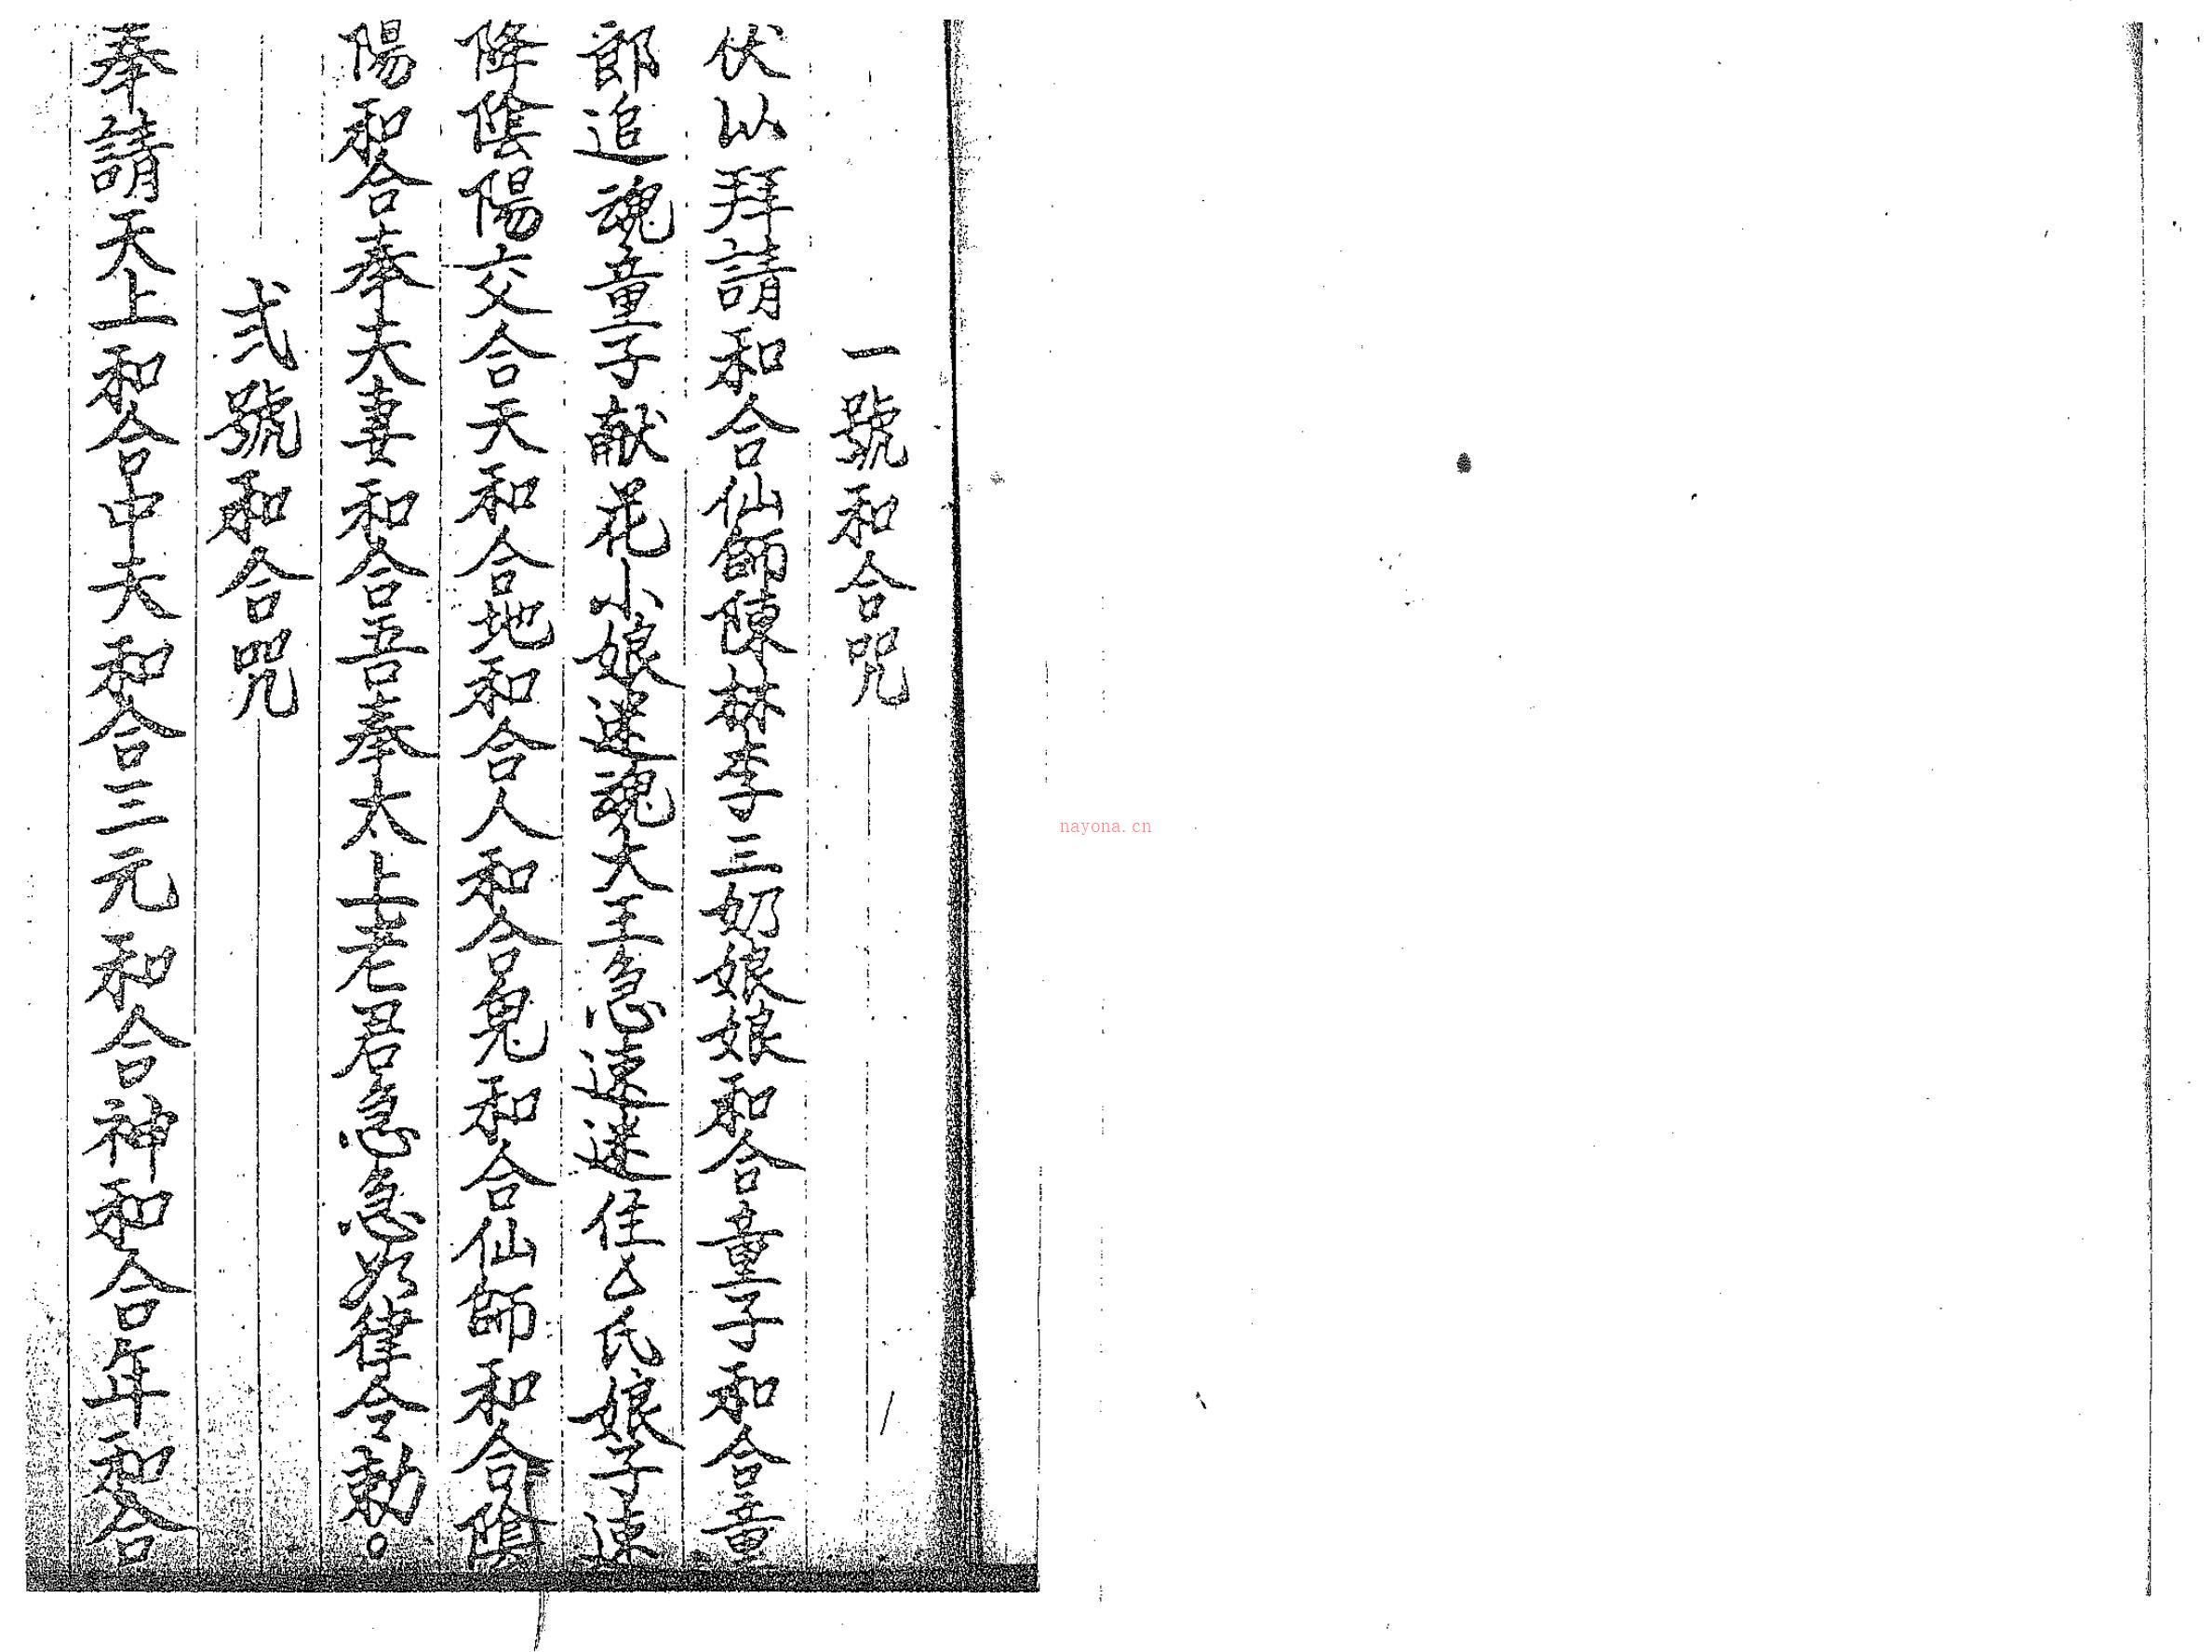 一號和合咒
伏以拜請和合仙師陳林李三奶娘娘和合童子和合童
郎追魂童子献花小娘迷魂大王急速迷住厶氏娘子速
降陰陽交合天和合地和合人和合鬼和合仙師和合陰
陽和合奉夫妻和合吾奉太上老君急急如律令勅。
弍號和合咒
奉請天上和合中夫和合三元和合神和合年和合
nayona.cn